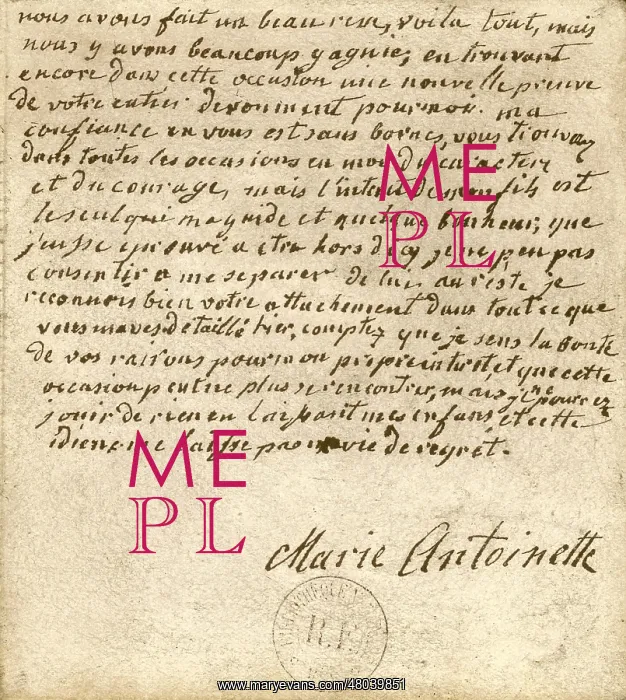 nous avons fait un beau reve, voila tout, mais
nous y avons beaucoup gagnie, en trouvant
encore dans cette occasion une nouvelle preuve
de votre entier devoument pour moi. ma
confiance en vous est sans bornes, vous trouverez
dans toutes les occasions en moi du caractere
et du courage, mais l'interet de mon fils est
le seul qui me guide et quelque bonheur, que
j'eusse eprouvé a etre hors d'ici je ne peu pas
consentir a me separer de lui. au reste je
reconnois bien votre attachement dans tout ce que
vous m'avez detaillé hier, comptez que je sens la bonté
de vos raisons pour mon propre interet, et que cette
occasion peut ne plus se rencontrer, mais je ne pourrez
jouir de rien en laissant mes enfans, et cette
idiene me laisse pas vie de regret.
ME
PL
ME
PL
Marie Antoinette
R.F.
www.maryevans.com/48039851